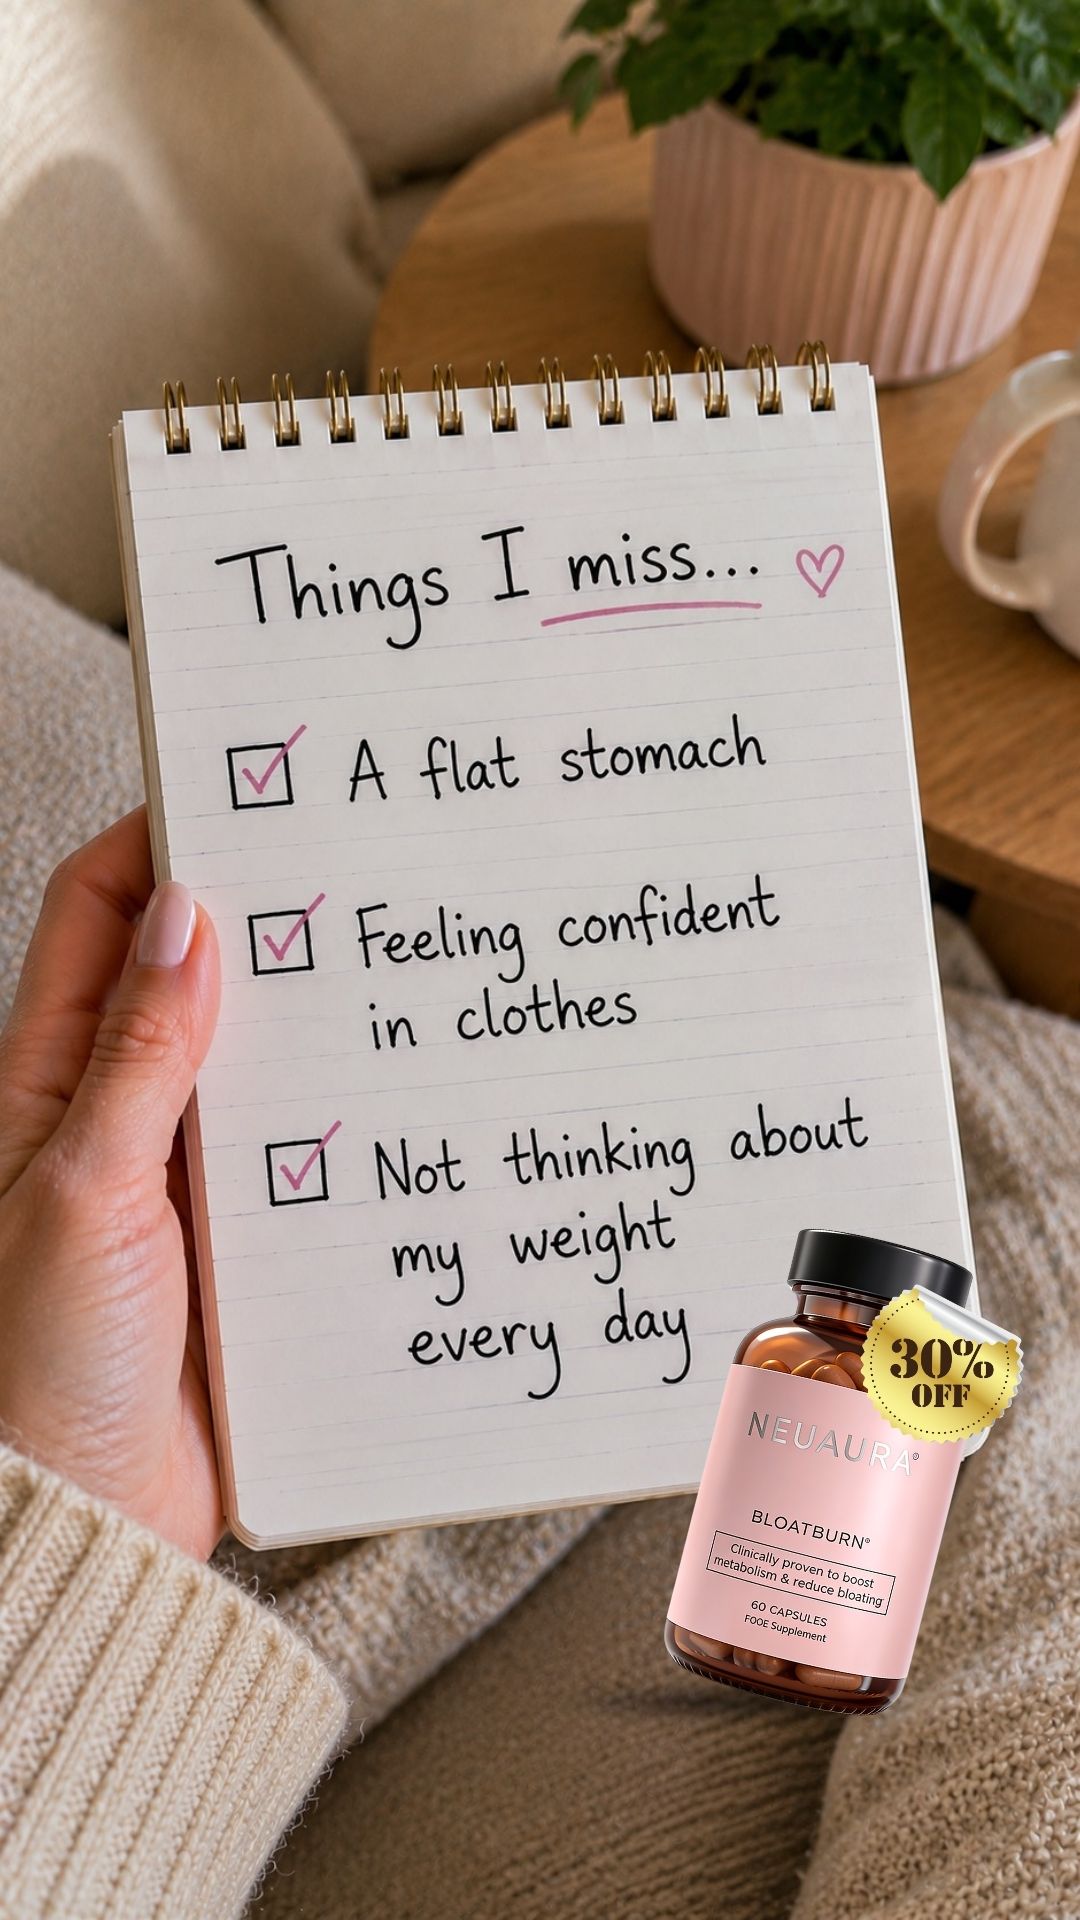 Things I miss...
A flat stomach
Feeling confident
in clothes
Not thinking about
my weight
every day
30%
OFF
NEUAURA®
BLOATBURN®
Clinically proven to boost
metabolism & reduce bloating
60 CAPSULES
FOOE Supplement